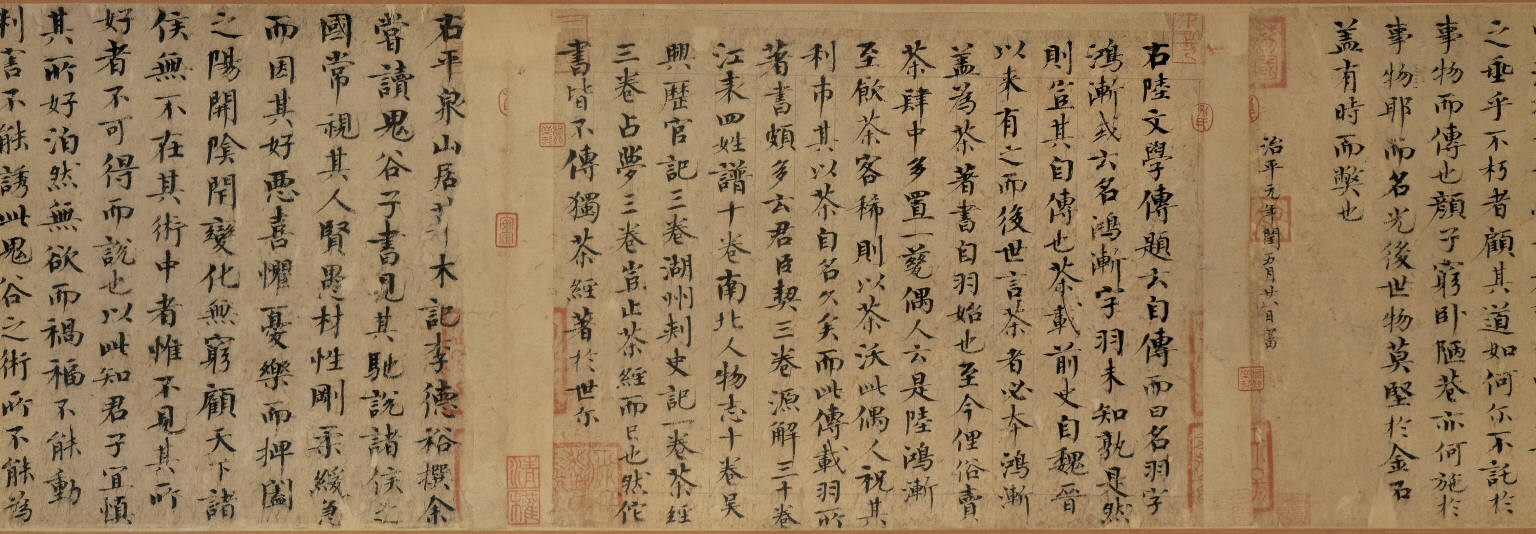 之垂乎不朽者顧其道如何尔不託於
事物而傳也顔子窮卧陋巷亦何施於
事物耶而名光後世物莫堅於金石
盖有時而獘也
治平元年閏五月廿八日書
右陸文學傳題云自傳而曰名羽字
鴻漸或云名鴻漸字羽未知孰是然
則豈其自傳也茶載前史自魏晉
以來有之而後世言茶者必本鴻漸
盖為茶著書自羽始也至今俚俗賣
茶肆中多置一甆偶人云是陸鴻漸
至飲茶客稀則以茶沃此偶人祝其
利市其以茶自名久矣而此傳載羽所
著書頗多云君臣契三卷源解三十卷
江表四姓譜十卷南北人物志十卷吴
興歷官記三卷湖州刺史記一卷茶經
三卷占夢三卷豈止茶經而已也然佗
書皆不傳獨茶經著於世尔
右平泉山居草木記李德裕撰余
嘗讀鬼谷子書見其馳說諸侯之
國常視其人賢愚材性剛柔緩急
而因其好惡喜懼憂樂而捭闔
之陽開陰閉變化無窮顧天下諸
侯無不在其術中者惟不見其所
好者不可得而說也以此知君子宜慎
其所好泊然無欲而禍福不能動
利害不能誘此鬼谷之術所不能為